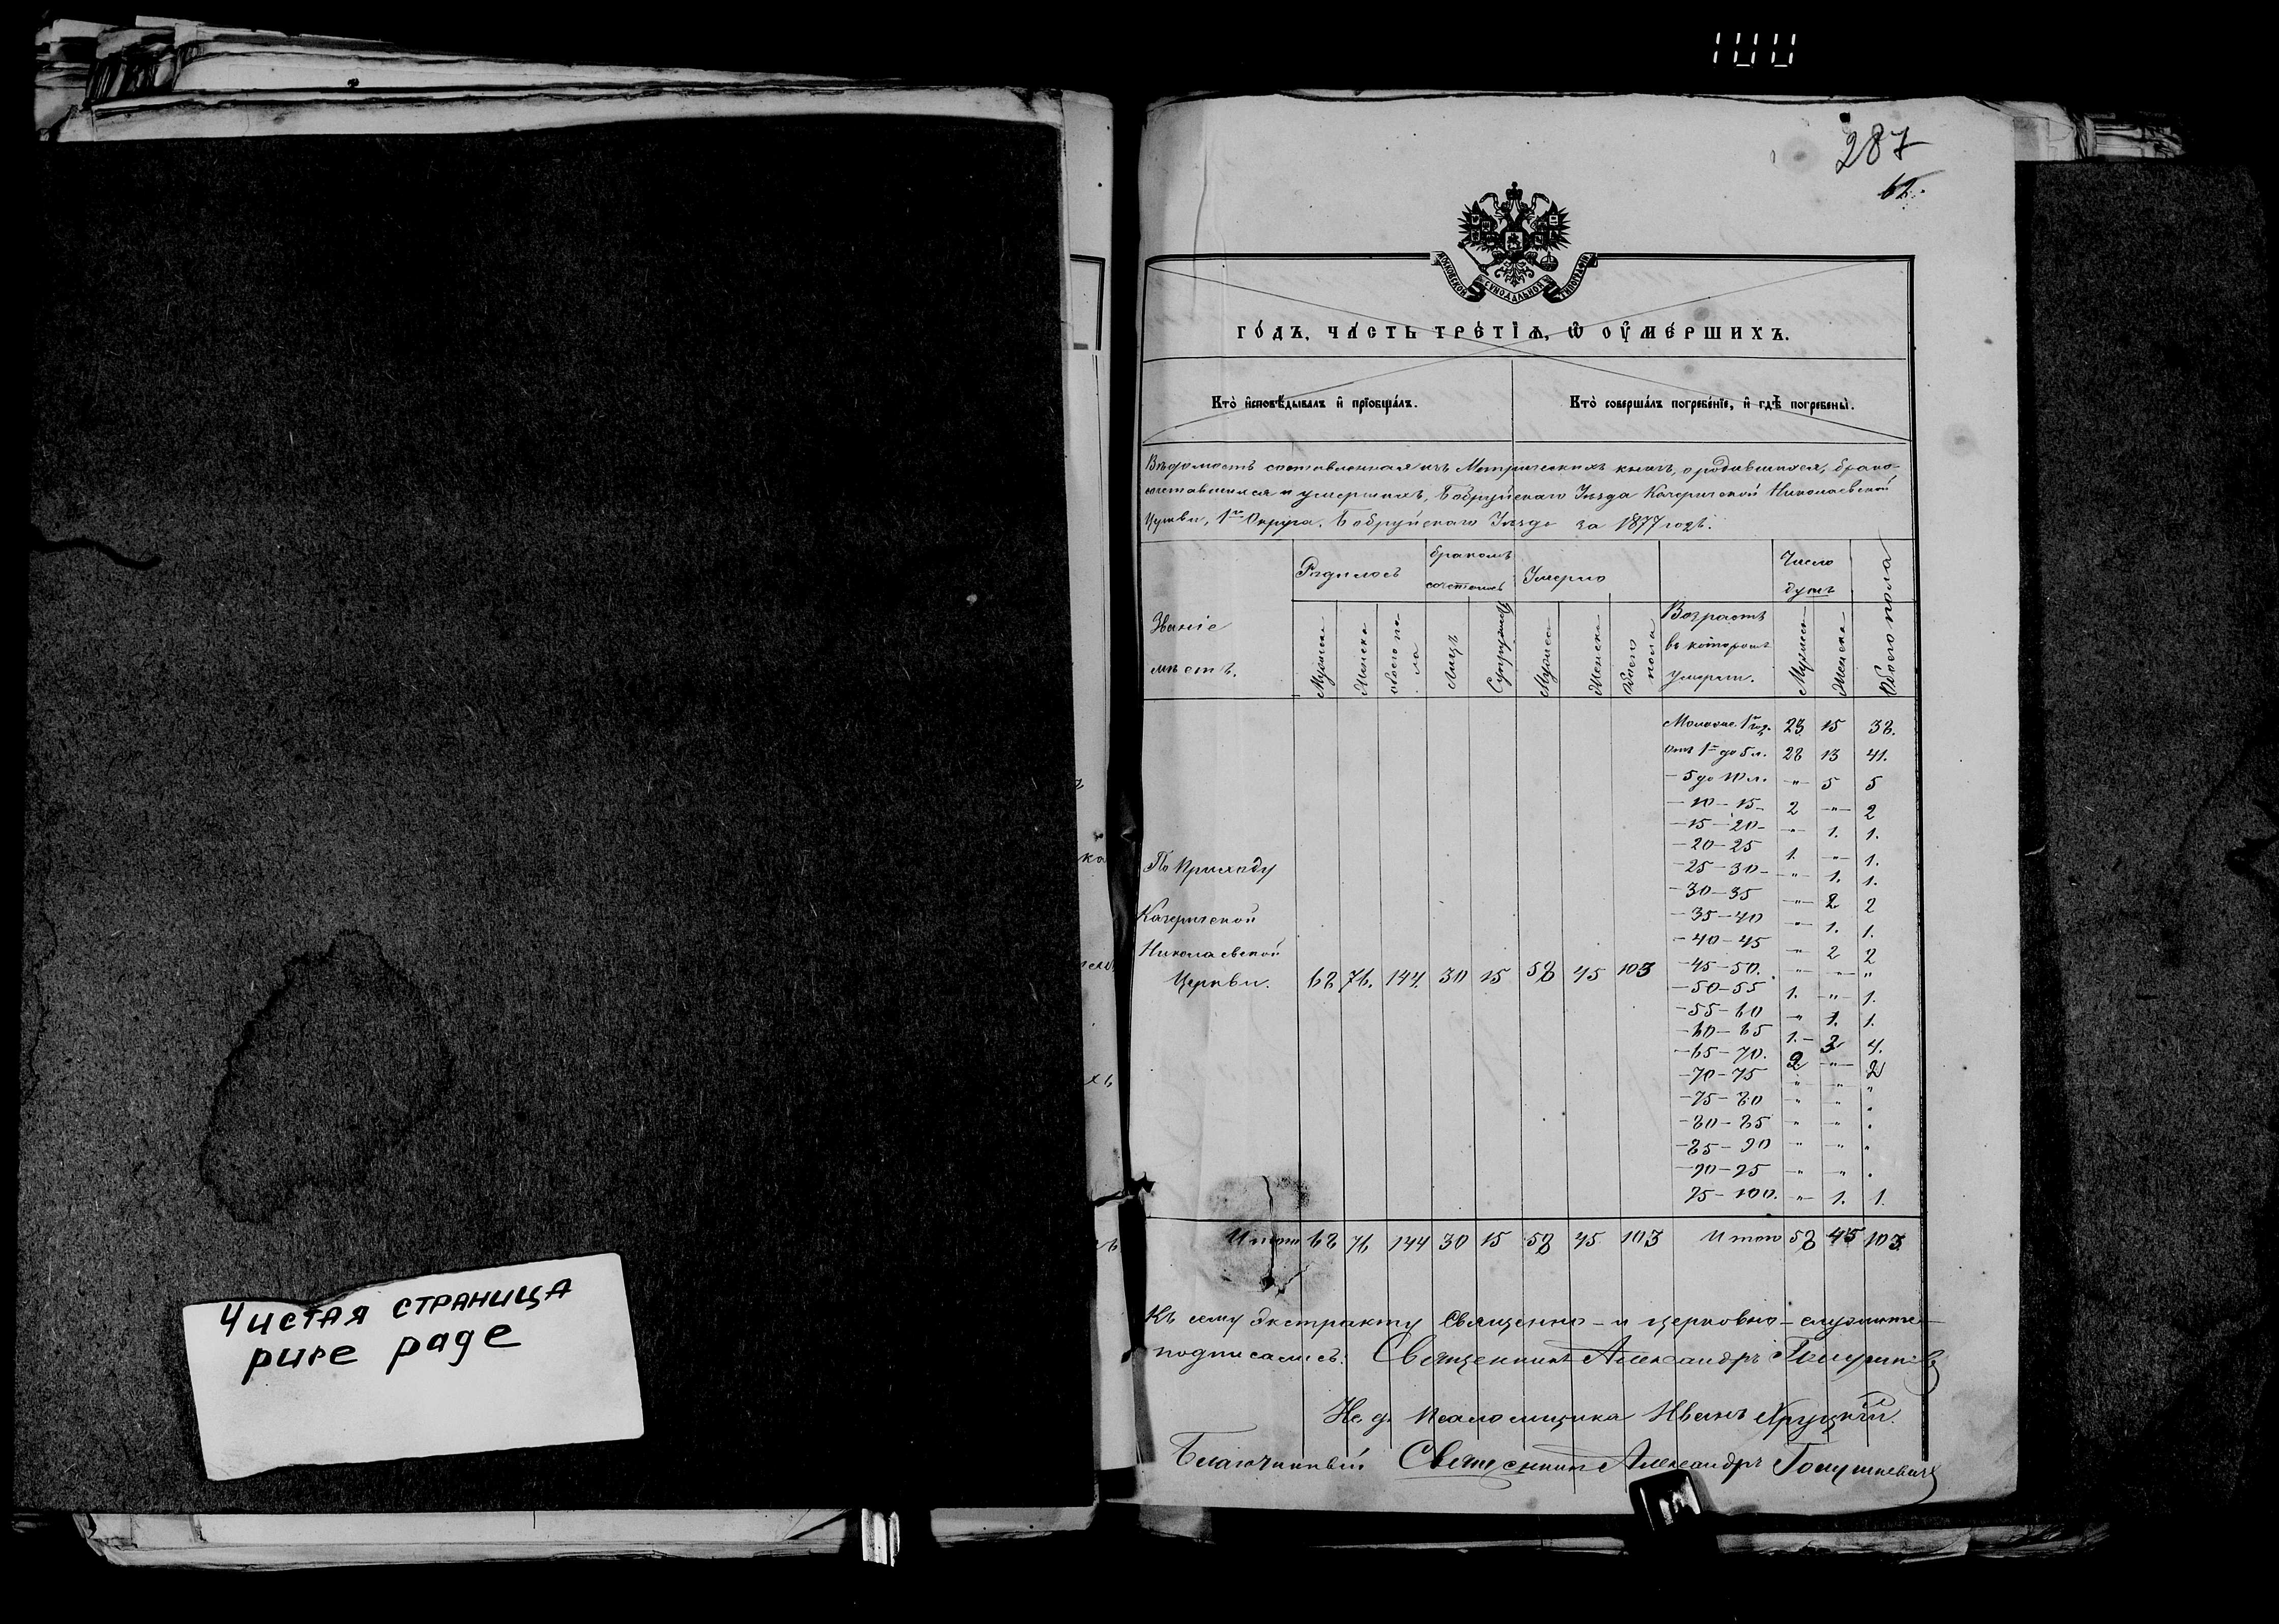 287
62.
МОСКОВСКОЙ СУНОДАЛЬНОЙ ТИПОГРАФІИ
ГО́ДЪ, ЧА́СТЬ ТРЕ́ТІѦ, Ѽ ОУ҆МЕ́РШИХЪ.
Кто̀ и҆сповѣ́дывалъ и҆ прїобща́лъ.
Кто̀ соверша́лъ погребе́нїе, и҆ гдѣ̀ погребены̀.
Вѣдомость составленная изъ Метрическихъ книгъ, о родившихся, брако-
сочетавшихся и умершихъ, Бобруйскаго Уѣзда Качеричской Николаевской
Церкви, 1го Округа, Бобруйскаго Уѣзда за 1877 годъ.
Званіе
мѣстъ.
Родилось
Бракомъ
сочеталось
Умерло
Возрастъ
въ которомъ
умерли.
Число
душъ
Обоего пола
Мужеска
Женска
обоего по-
ла
Лицъ
Супружествъ
Мужеска
Женска
Обоего
пола
Мужеска
Женска
Моложе 1 год. 23 15 38.
Отъ 1 до 5 л. 28 13 41.
- 5 до 10 л. -"- 5 5
- 10 - 15 - 2 -"- 2
- 15 - 20 - -"- 1. 1.
- 20 - 25 1. -"- 1.
- 25 - 30 - -"- 1. 1.
- 30 - 35 -"- 2 2
- 35 - 40 -"- 1. 1.
- 40 - 45 -"- 2 2
- 45 - 50. -"- -"- "
- 50 - 55 1. -"- 1.
- 55 - 60 -"- 1. 1.
- 60 - 65 1. - 3 4.
- 65 - 70. 2 -"- 2
- 70 - 75 " " "
- 75 - 80 " " "
- 80 - 85 " " "
- 85 - 90 " " "
- 90 - 95 " " "
95 - 100. -"- 1. 1.
По Приходу
Качеричской
Николаевской
Церкви. 68 76. 144. 30 15 58 45 103
Итого 68 76 144 30 15 58 45 103 Итого 58 45 103
Къ сему Экстракту Священно- и церковно-служители
подписались: Священникъ Александръ
И. д. Псаломщика Иванъ Хруцкій.
Благочинный Священникъ Александръ Голушкевичъ
Чистая страница
pure page